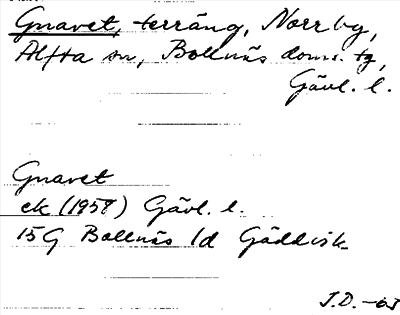 Gnavet, terräng, Norrby,
Alfta sn, Bollnäs doms. tg,
Gävl. l.
Gnavet
ek (1958) Gävl. l.
15G Bollnäs 1d Gäddvik
J.D. -63